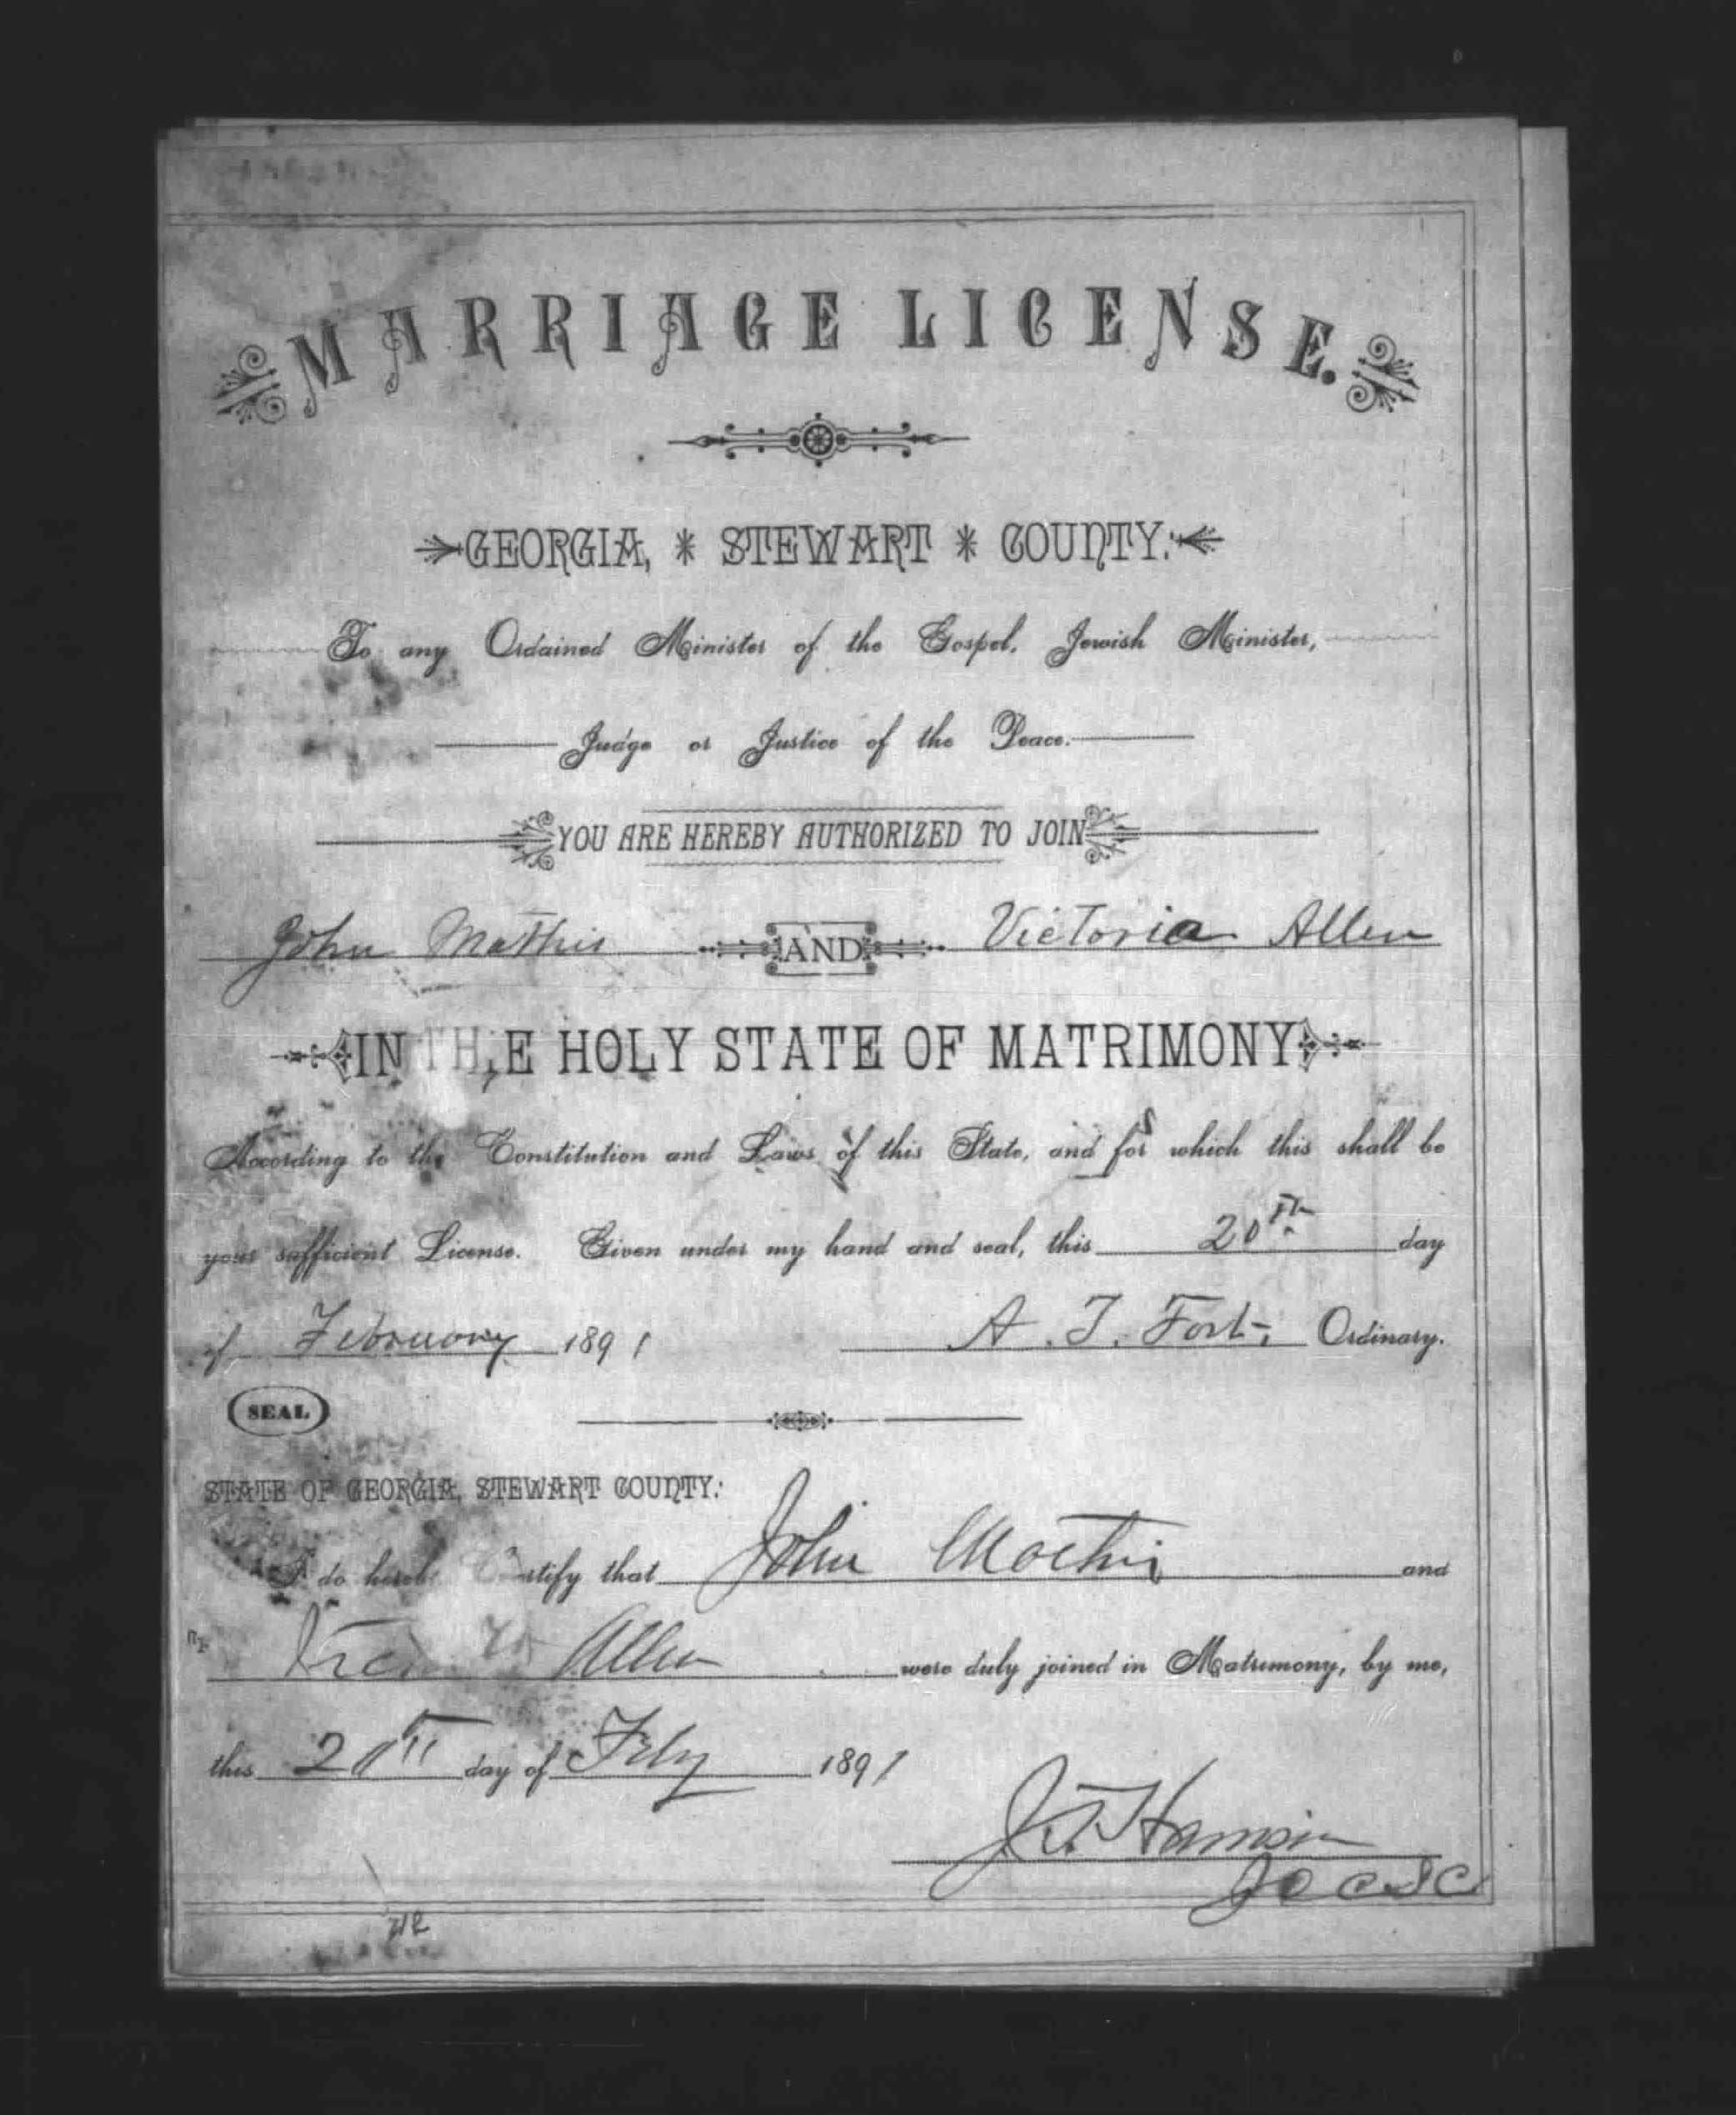 MARRIAGE LICENSE.
GEORGIA, * STEWART * COUNTY.
To any Ordained Minister of the Gospel, Jewish Minister,
Judge or Justice of the Peace.
YOU ARE HEREBY AUTHORIZED TO JOIN
John Mathis AND Victoria Allen
IN THE HOLY STATE OF MATRIMONY
According to the Constitution and Laws of this State, and for which this shall be
your sufficient License. Given under my hand and seal, this 20th day
of February 1891 A. T. Fort, Ordinary.
SEAL
STATE OF GEORGIA, STEWART COUNTY:
I do hereby Certify that John Mathis and
Allen were duly joined in Matrimony, by me,
this day of Feby 1891
J. T. Harrison